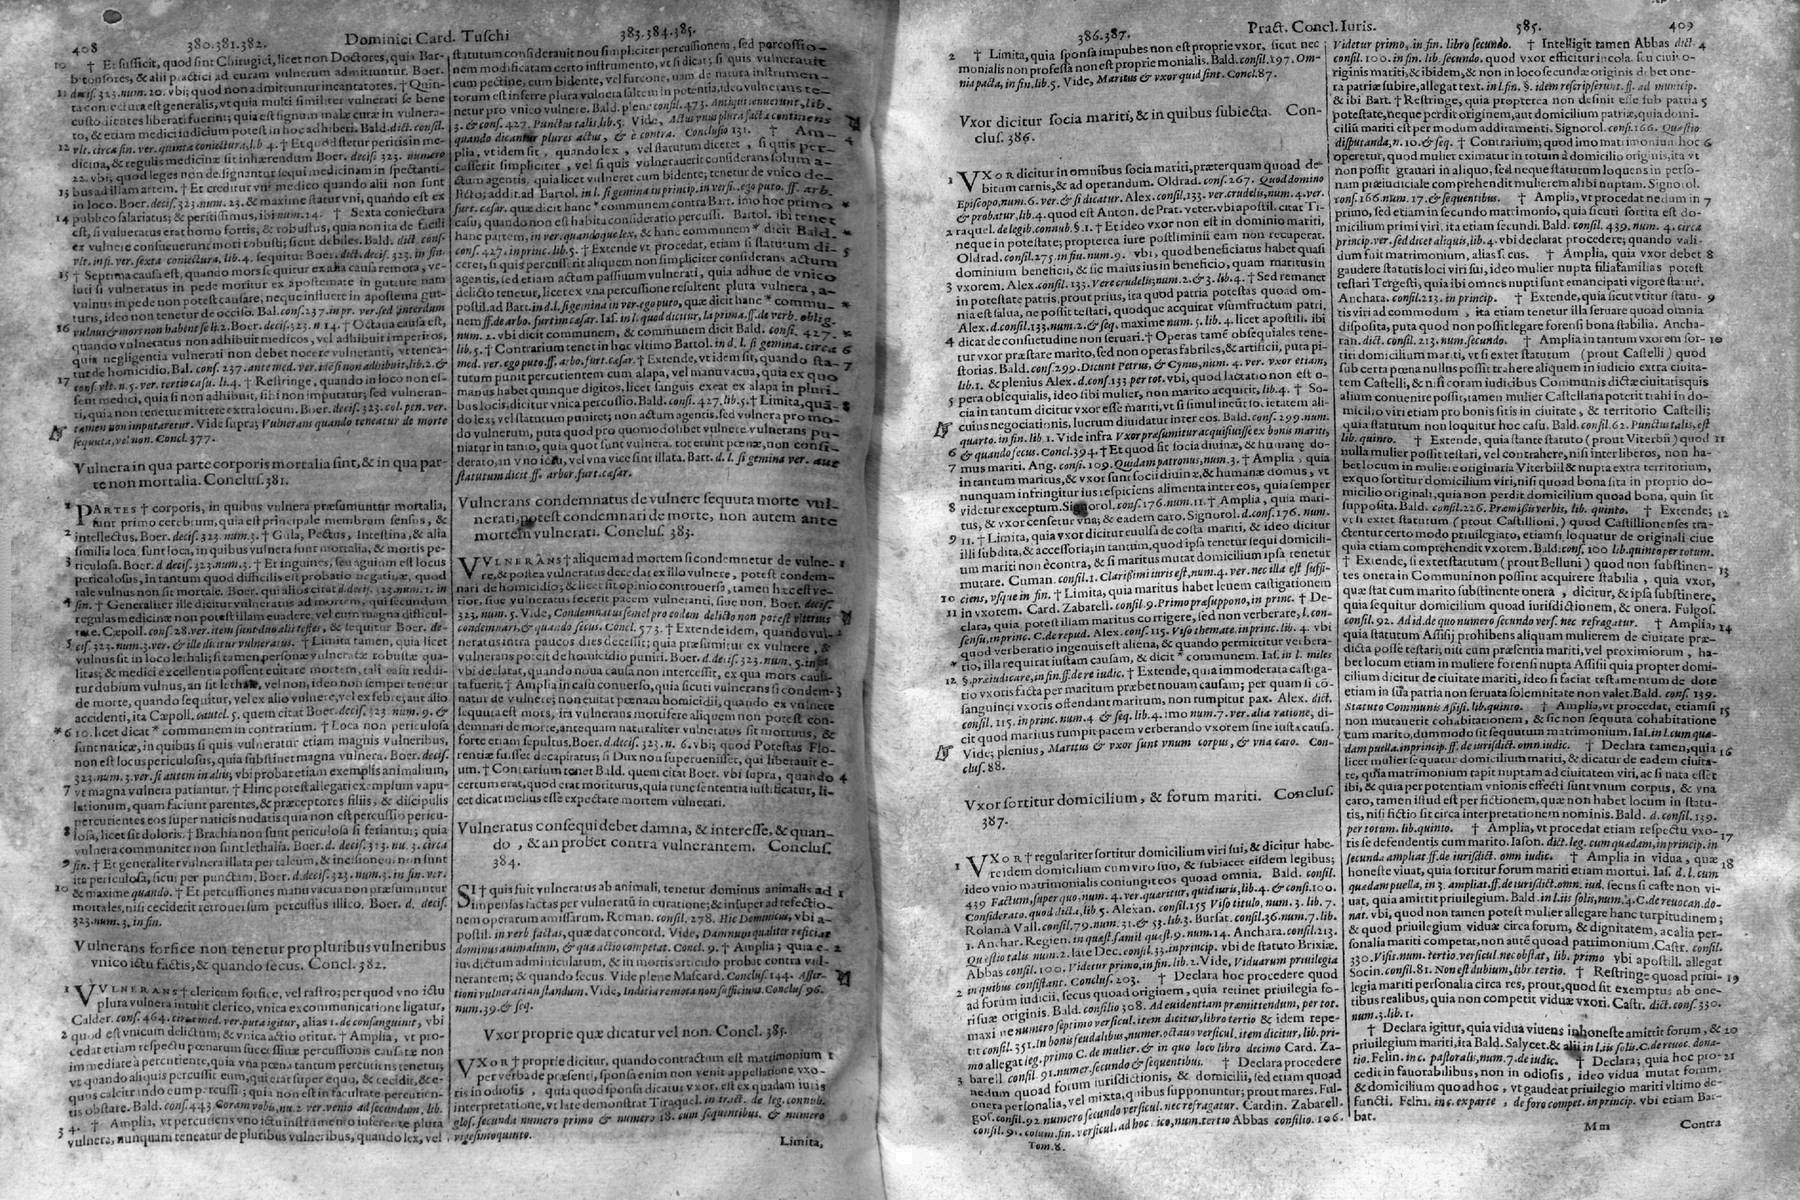 408 380.381.382. Dominici Card. Tuschi 383.384.385.
10 † Et sufficit, quod sint Chirurgici, licet non Doctores, quia Bar-
b tonsores, & alii practici ad curam vulnerum admittuntur. Boer.
11 decis. 323. num. 20. vbi; quod non admittuntur incantatores. † Quin-
ta coniectura est generalis, vt quia multi similiter vulnerati se bene
custodientes liberati fuerint; quia est signum malæ curæ in vulnera-
to, & etiam medici iudicium potest in hoc adhiberi. Bald. dict. consil.
12 vlt. circa fin. ver. quinta coniectura, lib 4. † Et quod stetur peritis in me-
dicina, & regulis medicinæ sit inhærendum Boer. decis. 323. numero
22. vbi; quod leges non designantur sequi medicinam in spectanti-
13 bus ad illam artem. † Et creditur vni medico quando alii non sunt
in loco. Boer. decis. 323. num. 23. & maxime statur vni, quando est ex
14 publico salariatus; & peritissimus, ibi num. 14. † Sexta coniectura
est, si vulneratus erat homo fortis, & robustus, quia non ita de facili
ex vulnere consueuerunt mori robusti; sicut debiles. Bald. dict. cons.
vlt. infi. ver. sexta coniectura, lib. 4. sequitur Boer. dict. decis. 323. in fin.
15 † Septima causa est, quando mors sequitur ex alia causa remota, ve-
luti si vulneratus in pede moritur ex apostemate in gutture nam
vulnus in pede non potest causare, neque influere in apostema gut-
turis, ideo non tenetur de occiso. Bal. cons. 237. in pr. ver. sed interdum
16 vulnus & mors non habent se li. 2. Boer. decis. 323. n 14. † Octaua causa est,
quando vulneratus non adhibuit medicos, vel adhibuit imperitos,
quia negligentia vulnerati non debet nocere vulneranti, vt tenea-
tur de homicidio. Bal. cons. 237. ante med. ver. item si non adhibuit, lib. 2. &
17 cons. vlt. n. 5. ver. tertio casu. li. 4. † Restringe, quando in loco non es-
sent medici, quia si non adhibuit, sibi non imputatur; sed vulneran-
ti, quia non tenetur mittere extra locum. Boer. decis. 323. col. pen. ver.
tamen non imputaretur. Vide supra; Vulnerans quando teneatur de morte
sequuta, vel non. Concl. 377.
Vulnera in qua parte corporis mortalia sint, & in qua par-
te non mortalia. Conclus. 381.
1 PARTES † corporis, in quibus vulnera præsumuntur mortalia,
sunt primo cerebrum, quia est principale membrum sensus, &
2 intellectus. Boer. decis. 323. num. 3. † Gula, Pectus, Intestina, & alia
similia loca. sunt loca, in quibus vulnera sunt mortalia, & mortis pe-
3 riculosa. Boer. d decis. 323. num. 3. † Et inguines, seu aguium est locus
periculosus, in tantum quod difficilis est probatio negatiuæ, quod
tale vulnus non sit mortale. Boer. qui alios citat d. decis. 323. num. 1. in
4 fin. † Generaliter ille dicitur vulneratus ad mortem, qui secundum
regulas medicinæ non potest illam euadere, vel cum magna difficul-
tate. Cæpoll. cons. 28. ver. item sunt duo alii testes, & sequitur Boer. de-
5 cis. 323. num. 3. ver. & ille dicitur vulneratus. † Limita tamen, quia licet
vulnus sit in loco lethali; si tamen personæ vulneratæ robustæ qua-
litas; & medici excellentia possent euitare mortem, tali casu reddi-
tur dubium vulnus, an sit lethale, vel non, ideo non semper tenetur
de morte, quando sequitur, vel ex alio vulnere, vel ex febre; aut alio
accidenti, ita Cæpoll. cautel. 5. quem citat Boer. decis. 323. num. 9. &
* 6 10. licet dicat * communem in contrarium. † Loca non periculosa
sunt naticæ, in quibus si quis vulneratur etiam magnis vulneribus,
non est locus periculosus, quia substinet magna vulnera. Boer. decis.
323. num. 3. ver. si autem in aliis; vbi probat etiam exemplis animalium,
7 vt magna vulnera patiantur. † Hinc potest allegari exemplum vapu-
lationum, quam faciunt parentes, & præceptores filiis, & discipulis
percurientes eos super naticis nudatis quia non est percussio pericu-
8 losa, licet sit doloris. † Brachia non sunt periculosa si feriantur; quia
vulnera communiter non sunt lethalia. Boer. d. decis. 323. nu. 3. circa
9 fin. † Et generaliter vulnera illata per taleum, & incisionem non sunt
ita periculosa, sicut per punctam. Boer. d. decis. 323. num. 3. in fin. ver.
10 & maxime quando. † Et percussiones manu vacua non præsumuntur
mortales, nisi ceciderit retrouersum percussus illico. Boer. d. decis.
323. num. 3. in fin.
Vulnerans forfice non tenetur pro pluribus vulneribus
vnico ictu factis, & quando secus. Concl. 382.
1 VVLNERANS † clericum forfice, vel rastro; per quod vno ictu
plura vulnera intulit clerico, vnica excommunicatione ligatur,
Calder. cons. 464. circa med. ver. puta igitur, alias 1. de consanguinit, vbi
2 quod est vnicum delictum; & vnica actio oritur. † Amplia, vt pro-
cedat etiam respectu pœnarum successiuæ percussionis causatæ non
immediate à percutiente, quia vna pœna tantum percutiens tenetur;
vt quando aliquis percussit eum, qui erat super equo, & cecidit, & e-
quus calcitrando eum percussit; quia non est in facultate percutien-
tis obstare. Bald. cons. 443 Coram vobis, nu. 2 ver. venio ad secundum, lib.
3 4. † Amplia, vt percutiens vno ictu instrumento inferente plura
vulnera, nunquam teneatur de pluribus vulneribus, quando lex, vel
statutum considerauit non simpliciter percussionem, sed percussio-
nem modificatam certo instrumento, vt si dicat; si quis vulnerauit
cum pectine, cum bidente, vel furcone, nam de natura instrumen-
torum est inferre plura vulnera saltem in potentia, ideo vulnerans te-
netur pro vnico vulnere. Bald. plene consil. 473. Antiqui tenuerunt, lib.
3. & cons. 427. Punctus talis, lib. 5. Vide, Actus vnus plura facta continens
quando dicantur plures actus, & è contra. Conclusio 131. † Am- 4
plia, vt idem sit, quando lex, vel statutum diceret, si quis per-
cusserit simpliciter, vel si quis vulnerauerit considerans solum a-
ctum agentis, quia licet vulneret cum bidente; tenetur de vnico de-
licto; addit. ad Bartol. in l. si gemina in princip. in versi. ego puto. ff. arb.
furt. cæsar. quæ dicit hanc * communem contra Bart. imo hoc primo *
casu, quando non est habita consideratio percussi. Bartol. ibi tenet
hanc partem, in ver. quandoque lex, & hanc communem * dicit Bald. *
cons. 427. in princ. lib. 5. † Extende vt procedat, etiam si statutum di- 5
ceret, si quis percusserit aliquem non simpliciter considerans actum
agentis, sed etiam actum passiuum vulnerati, quia adhuc de vnico
delicto tenetur, licet ex vna percussione resultent plura vulnera, a-
postil. ad Bart. in d. l. si gemina in ver. ego puto, quæ dicit hanc * commu- *
nem ff. de arbo. furt. im cæsar. Ias. in l. quod dicitur, la prima, ff. de verb. oblig.
num. 2. vbi dicit communem, & communem dicit Bald. consi. 427. *
lib. 5. † Contrarium tenet in hoc vltimo Bartol. in d. l. si gemina. circa 6
med. ver. ego puto ff. arbo. furt. cæsar. † Extende, vt idem sit, quando sta- 7
tutum punit percutientem cum alapa, vel manu vacua, quia ex quo
manus habet quinque digitos, licet sanguis exeat ex alapa in pluri-
bus locis, dicitur vnica percussio. Bald. cons. 427. lib. 5. † Limita, quā- 8
do lex; vel statutum puniret; non actum agentis, sed vulnera pro mo-
do vulnerum, puta quod pro quomodolibet vulnere vulnerans pu-
niatur in tanto, quia quot sunt vulnera, tot erunt pœnæ, non consi-
derato, an vno ictu, vel vna vice sint illata. Bart. d. l. si gemina ver. aut
statutum dicit ff. arbor. furt. cæsar.
Vulnerans condemnatus de vulnere sequuta morte vul-
nerati, potest condemnari de morte, non autem ante
mortem vulnerati. Conclus. 383.
VVLNERANS † aliquem ad mortem si condemnetur de vulne- 1
re, & postea vulneratus decedat ex illo vulnere, potest condem-
nari de homicidio; & licet sit opinio controuersa, tamen hæc est ve-
rior, siue vulneratus fecerit pacem vulneranti, siue non. Boer. decis.
323. num. 5. Vide, Condemnatus semel pro eodem delicto non potest vlterius
condemnari, & quando secus. Concl. 573. † Extende idem, quando vul- 2
neratus intra paucos dies decessit; quia præsumitur ex vulnere, &
vulnerans potest de homicidio puniri. Boer. d. decis. 323. num. 5. in fin
vbi declarat, quando noua causa non intercessit, ex qua mors causa-
ta fuerit. † Amplia in casu conuerso, quia sicuti vulnerans si condem- 3
natur de vulnere; non euitat pœnam homicidii, quando ex vulnere
sequuta est mors, ita vulnerans mortifere aliquem non potest con-
demnari de morte, antequam naturaliter vulneratus sit mortuus, &
forte etiam sepultus. Boer. d. decis. 323. n. 6. vbi; quod Potestas Flo-
rentiæ fuisset decapitatus; si Dux non superuenisset, qui liberauit e-
um. † Contrarium tenet Bald. quem citat Boer. vbi supra, quando 4
certum erat, quod erat moriturus, quia tunc sententia iustificatur, li-
cet dicat melius esse expectare mortem vulnerati.
Vulneratus consequi debet damna, & interesse, & quan-
do, & an probet contra vulnerantem. Conclus.
384.
SI † quis fuit vulneratus ab animali, tenetur dominus animalis ad 1
impensas factas per vulneratū in curatione; & insuper ad refectio-
nem operatum amissarum. Roman. consil. 278. Hic Dominicus, vbi a-
postil. in verb factas, quæ dat concord. Vide, Damnum qualiter reficiat
dominus animalium, & qua actio competat. Concl. 9. † Amplia; quia e- 2
ius dictum adminiculatum, & in mortis articulo probat contra vul-
nerantem; & quando secus. Vide plene Mascard. Conclus. 144. Asser-
tioni vulnerati an standum. Vide, Inditia remota non sufficiunt. Conclus 96.
num. 39. & seq.
Vxor proprie quæ dicatur vel non. Concl. 385.
VXOR † proprie dicitur, quando contractum est matrimonium 1
per verba de præsenti, sponsa enim non venit appellatione vxo-
ris in odiosis, quia quod sponsa dicatur vxor. est ex quadam iuris
interpretatione, vt late demonstrat Tiraquel. in tract. de leg. connub.
glos. secunda numero primo & numero 18. cum sequentibus & numero
vigesimoquinto.
Limita,
386.387. Pract. Concl. Iuris. 585. 409
2 † Limita, quia sponsa impubes non est proprie vxor, sicut nec
monialis non professa non est proprie monialis. Bald. consil. 197. Om-
nia pacta, in fin. lib. 5. Vide, Maritus & vxor quid sint. Concl. 87.
Vxor dicitur socia mariti, & in quibus subiecta. Con-
clus. 386.
1 VXOR dicitur in omnibus socia mariti, præterquam quoad de-
bitum carnis, & ad operandum. Oldrad. cons. 267. Quod domino
Episcopo, num. 6. ver. & si dicatur. Alex. cons. 133. ver. crudelis, num. 4. ver.
& probatur, lib. 4. quod est Anton. de Prat. veter. vbi apostil. citat Ti-
2 raquel. de leg. connub. §. 1. † Et ideo vxor non est in dominio mariti,
neque in potestate; propterea iure postliminii eam non recuperat.
Oldrad. consil. 275. in fin. num. 9. vbi, quod beneficiatus habet quasi
dominium beneficii, & sic maius ius in beneficio, quam maritus in
3 vxorem. Alex. consil. 133. Vere crudelis; num. 2. & 3. lib. 4. † Sed remanet
in potestate patris, prout prius, ita quod patria potestas quoad om-
nia est salua, ne possit testari, quodque acquirat vsumfructum patri.
Alex. d. consil. 133. num. 2. & seq. maxime num. 5. lib. 4. licet apostili. ibi
4 dicat de consuetudine non seruari. † Operas tamē obsequiales tene-
tur vxor præstare marito, sed non operas fabriles, & artificii, puta pi-
storias. Bald. cons. 299. Dicunt Petrus, & Cynus, num. 4. ver. vxor etiam,
lib. 1. & plenius Alex. d. cons. 133 per tot. vbi, quod lactatio non est o-
pera obsequialis, ideo sibi mulier, non marito acquirit, lib. 4. † So-
5 cia in tantum dicitur vxor esse mariti, vt si simul inuēt: to. ietatem ali-
cuius negociationis, lucrum diuidatur inter eos. Bald. consil. 299. num.
quarto. in fin. lib. 1. Vide infra Vxor præsumitur acquisiuisse ex bonis mariti,
6 & quando secus. Concl. 394. † Et quod sit socia diuinæ, & humanę do-
7 mus mariti. Ang. consi. 109. Quidam patronus, num. 3. † Amplia, quia
in tantum maritus, & vxor sunt socii diuinæ, & humanæ domus, vt
nunquam infringitur ius respiciens alimenta inter eos, quia semper
8 videtur exceptum. Signorol. cons. 176. num. 11. † Amplia, quia mari-
tus, & vxor censetur vna; & eadem caro. Signorol. d. cons. 176. num.
9 11. † Limita, quia vxor dicitur euulsa de costa mariti, & ideo dicitur
illi subdita, & accessoria; in tantum, quod ipsa tenetur sequi domicili-
um mariti non ècontra, & si maritus mutat domicilium ipsa tenetur
mutare. Cuman. consil. 1. Clarissimi iuris est, num. 4. ver. nec illa est suffi-
10 ciens, vsque in fin. † Limita, quia maritus habet leuem castigationem
11 in vxorem. Card. Zabarell. consil. 9. Primo præsuppono, in princ. † De-
clara, quia potest illam maritus corrigere, sed non verberate, l. con-
sensu, in princ. C. de repud. Alex. cons. 115. Viso themate. in princ. lib. 4. vbi
quod verberatio ingenuis est aliena, & quando permittitur verbera-
* tio, illa requirat iustam causam, & dicit * communem. Ias. in l. miles
12 §. præiudicare, in fin. ff. de re iudic. † Extende, quia immoderata castiga-
tio vxoris facta per maritum præbet nouam causam; per quam si cō-
sanguinei vxoris offendant maritum, non rumpitur pax. Alex. dict.
consil. 115. in princ. num. 4 & seq. lib. 4. imo num. 7. ver. alia ratione, di-
cit quod maritus rumpit pacem verberando vxorem sine iusta causa.
Vide; plenius, Maritus & vxor sunt vnum corpus, & vna caro. Con-
clus. 88.
Vxor sortitur domicilium, & forum mariti. Conclus.
387.
1 VXOR † regulariter sortitur domicilium viri sui, & dicitur habe-
re idem domicilium cum viro suo, & subiacet eisdem legibus;
ideo vnio matrimonialis coniungit eos quoad omnia. Bald. consil.
439 Factum, super quo, num. 4. ver. quæritur, quid iuris, lib. 4. & consi. 100.
Considerato. quod dicta, lib 5. Alexan. cons. 155 Viso titulo, num. 3. lib. 7.
Rolan. à Vall. consil. 79. num. 31. & 53. lib. 3. Bursat. consil. 36. num. 7. lib.
1. Anchar. Regien. in quæst. famil quæst. 9. num. 14. Anchara. consil. 213.
Quæstio talis num. 2. late Dec. consil. 33. in princip. vbi de statuto Brixiæ.
Abbas consil. 100, Videtur primo, in fin. lib. 2. Vide, Viduarum priuilegia
in quibus consistant. Conclus. 203. † Declara hoc procedere quod
2 ad forum iudicii, secus quoad originem, quia retinet priuilegia fo-
ri suæ originis. Bald. consilio 308. Ad euidentiam præmittendum, per tot.
maxi me numero septimo versicul. item dicitur, libro tertio & idem repe-
tit consil. 351. In bonis feudalibus, numer. octauo versicul, item dicitur, lib. pri-
mo allegat leg. prima C. de mulier. & in quo loco libro decimo Card. Za-
barell. consil. 91. numer. secundo & sequentibus. † Declara procedere
3 nedum quoad forum iurisdictionis, & domicilii, sed etiam quoad
onera personalia, vel mixta, quibus supponuntur; prout mares. Ful-
gos. consil. 92 numero secundo versicul. nec refragatur. Cardin. Zabarell.
consil. 91. colum. fin. versicul. ad hoc ico, num. tertio Abbas consilio. 106.
Tom. 8.
Videtur primo, in fin. libro secundo. † Intelligit tamen Abbas dict. 4
consil. 100. in fin. lib. secundo. quod vxor efficitur incola. seu ciuis o-
riginis mariti, & ibidem, & non in loco secundæ originis debet one-
ra patriæ subire, allegat text. in l. fin. §. idem rescripserunt. ff. ad municip.
& ibi Bart. † Restringe, quia propterea non definit esse sub patria 5
potestate, neque perdit originem, aut domicilium patriæ, quia domi-
cilium mariti est per modum additamenti. Signorol. cons. 166. Quæstio
disputanda, n. 10. & seq. † Contrarium; quod imo matrimonium hoc 6
operetur, quod mulier eximatur in totum à domicilio originis, ita vt
non possit grauari in aliquo, sed neque statutum loquens in perso-
nam præiudiciale comprehendit mulierem alibi nuptam. Signorol.
cons. 166. num. 17. & sequentibus. † Amplia, vt procedat nedum in 7
primo, sed etiam in secundo matrimonio, quia sicuti sortita est do-
micilium primi viri, ita etiam secundi. Bald. consil. 439. num. 4. circa
princip. ver. sed dicet aliquis, lib. 4. vbi declarat procedere; quando vali-
dum fuit matrimonium, alias s. cus. † Amplia, quia vxor debet 8
gaudere statutis loci viri sui, ideo mulier nupta filiafamilias potest
testari Tergesti, quia ibi omnes nupti sunt emancipati vigore statuti.
Anchara. consil. 213. in princip. † Extende, quia sicut vtitur statu- 9
tis viri ad commodum, ita etiam tenetur illa seruare quoad omnia
disposita, puta quod non possit legare forensi bona stabilia. Ancha-
ran. dict. consil. 213. num. secundo. † Amplia in tantum vxorem sor- 10
tiri domicilium mariti, vt si extet statutum (prout Castelli) quod
sub certa pœna nullus possit trahere aliquem in iudicio extra ciuita-
tem Castelli, & nisi coram iudicibus Communis dictæ ciuitatis quis
alium conuenire possit, tamen mulier Castellana poterit trahi in do-
micilio viri etiam pro bonis sitis in ciuitate, & territorio Castelli;
quia statutum non loquitur hoc casu. Bald. consil. 62. Punctus talis, est
lib. quinto. † Extende, quia stante statuto (prout Viterbii) quod 11
nulla mulier possit testari, vel contrahere, nisi inter liberos, non ha-
bet locum in muliere originaria Viterbii & nupta extra territorium,
ex quo sortitur domicilium viri, nisi quoad bona sita in proprio do-
micilio originali, quia non perdit domicilium quoad bona, quin sit
supposita. Bald. consil. 226. Præmissi verbis, lib. quinto. † Extende; 12
vt si extet statutum (prout Castillioni.) quod Castillionenses tra-
ctentur certo modo priuilegiato, etiamsi loquatur de originali ciue
quia etiam comprehendit vxorem. Bald. cons. 100 lib. quinto per totum.
† Extende, si extet statutum (prout Belluni) quod non substinen- 13
tes onera in Communi non possint acquirere stabilia, quia vxor,
quæ stat cum marito substinente onera, dicitur, & ipsa substinere,
quia sequitur domicilium quoad iurisdictionem, & onera. Fulgos.
consil. 92. Ad id. de quo numero secundo vers. nec refragatur. † Amplia, 14
quia statutum Assisij prohibens aliquam mulierem de ciuitate præ-
dicta posse testari; nisi cum præsentia mariti, vel proximiorum, ha-
bet locum etiam in muliere forensi nupta Assisii quia propter domi-
cilium dicitur de ciuitate mariti, ideo si faciat testamentum de dote
etiam in sua patria non seruata solemnitate non valet. Bald. cons. 139.
Statuto Communis Assisi, lib. quinto. † Amplia, vt procedat, etiamsi 15
non mutauerit cohabitationem, & sic non sequuta cohabitatione
cum marito, dummodo sit sequutum matrimonium. Ias. in l. cum qua-
dam puella, in princip. ff. de iurisdict. omn iudic. † Declara tamen, quia 16
licet mulier sequatur domicilium mariti, & dicatur de eadem ciuita-
te, quia matrimonium rapit nuptam ad ciuitatem viri, ac si nata esset
ibi, & quia per potentiam vnionis effecti sunt vnum corpus, & vna
caro, tamen istud est per fictionem, quæ non habet locum in statu-
tis, nisi fictio circa interpretationem nominis. Bald. d. consil. 139.
per totum. lib. quinto. † Amplia, vt procedat etiam respectu vxo- 17
ris se defendentis cum marito. Iason. dict. leg. cum quædam, in princip. in
secunda ampliat ff. de iurisdict. omn iudic. † Amplia in vidua, quæ 18
honeste viuat, quia sortitur forum mariti etiam mortui. Ias. d. l. cum
quædam puella, in 3. ampliat. ff. de iurisdict. omn. iud. secus si caste non vi-
uat, quia amittit priuilegium. Bald. in l. iis solis, num. 4. C. de reuocan. do-
nat. vbi, quod non tamen potest mulier allegare hanc turpitudinem;
& quod priuilegium viduæ circa forum, & dignitatem, ac alia per-
sonalia mariti competat, non autē quoad patrimonium. Castr. consil.
330. Visis. num. tertio versicul. nec obstat, lib. primo vbi apostill. allegat
Socin. consil. 81. Non est dubium, libr. tertio. † Restringe quoad priui- 19
legia mariti personalia circa res, prout, quod sit exemptus ab one-
ribus realibus, quia non competit viduæ vxori. Castr. dict. cons. 330.
num. 3. lib. 1.
† Declara igitur, quia vidua viuens inhoneste amittit forum, & 20
priuilegium mariti, ita Bald. Salycet. & alii in l. iis solis. C. de reuoc. dona-
tio. Felin. in c. pastoralis, num. 7. de iudic. † Declara; quia hoc pro- 21
cedit in fauorabilibus, non in odiosis, ideo vidua mutat forum,
& domicilium quoad hoc, vt gaudeat priuilegio mariti vltimo de-
functi. Felin. in c. ex parte, de foro compet. in princip. vbi etiam Bar-
bat.
Mm Contra